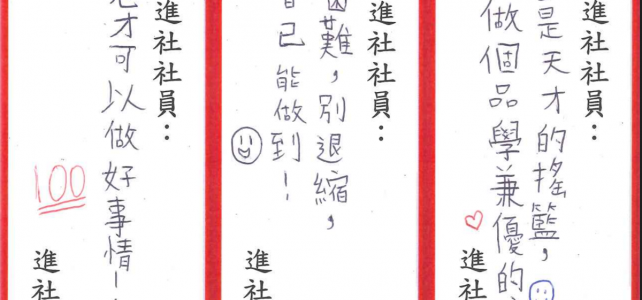 進社社員：
是天才的搖籃，
做個品學兼優的
進社
進社社員：
困難，別退縮，
自己能做到！
進社
進社社員：
才可以做好事情！
100
進社